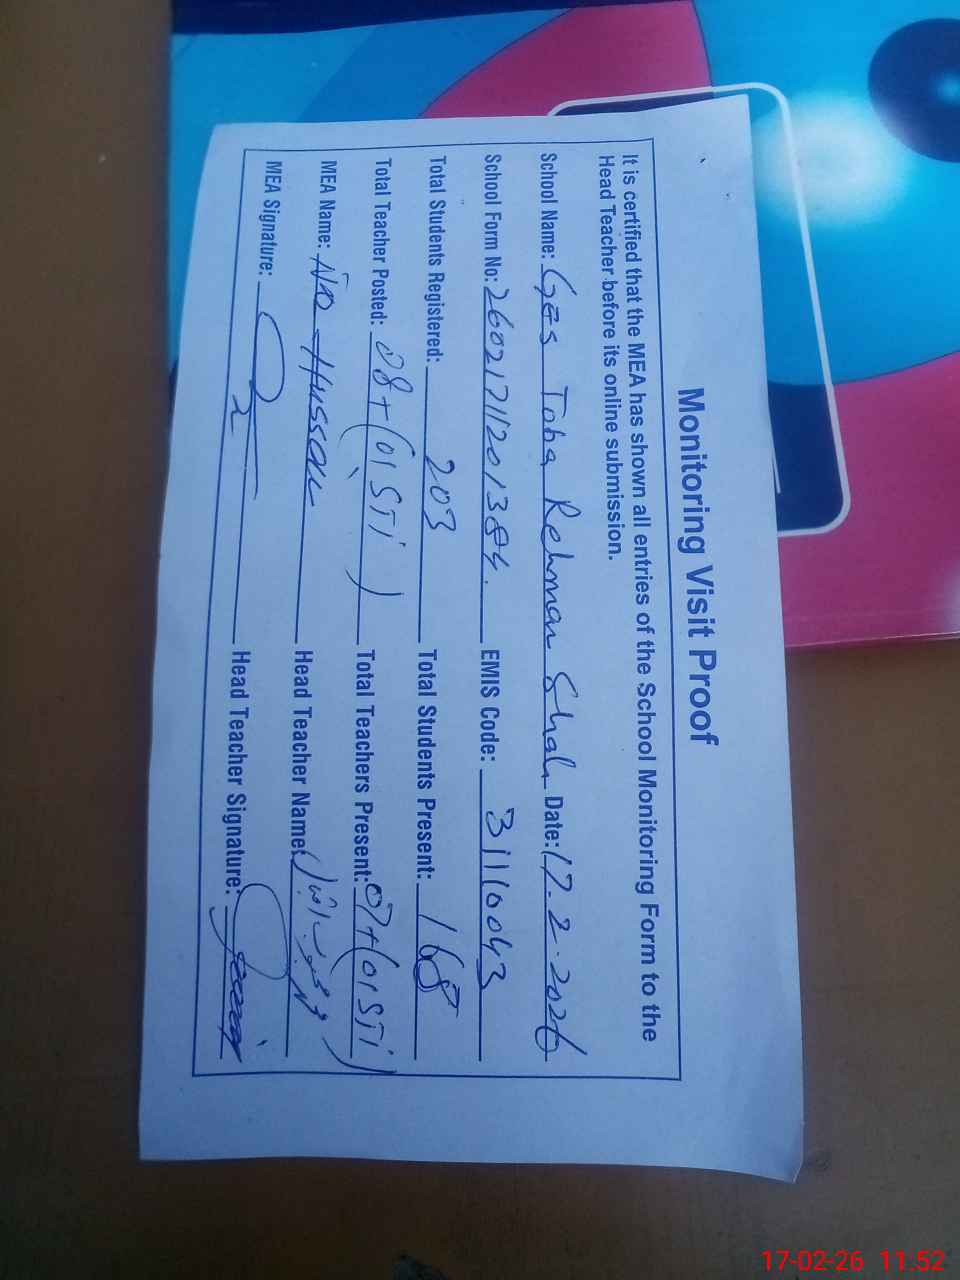 Monitoring Visit Proof
It is certified that the MEA has shown all entries of the School Monitoring Form to the
Head Teacher before its online submission.
School Name: Ges Toba Rehman Shah Date: 17.2.2026
School Form No: 26021711201384. EMIS Code: 31110043
Total Students Registered: 203 Total Students Present: 168
Total Teacher Posted: 08+(01 STI) Total Teachers Present: 07+(01 STI)
MEA Name: Hussan Head Teacher Name:
MEA Signature: Head Teacher Signature:
17-02-26 11.52